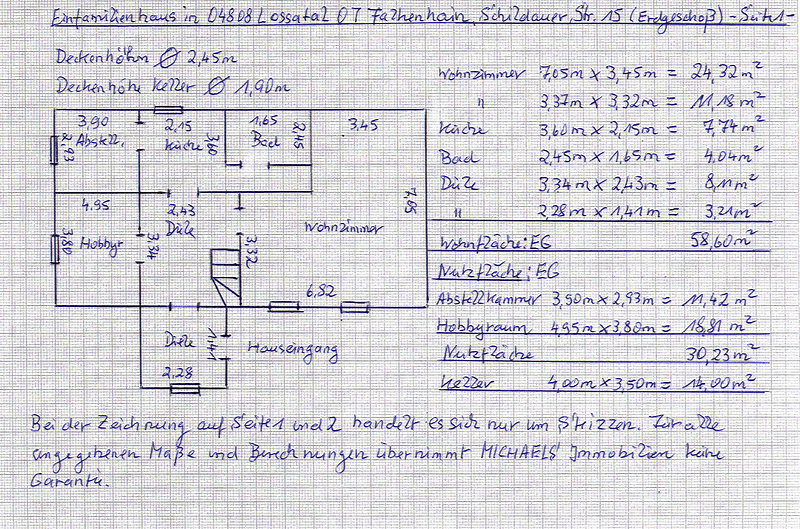 Einfamilienhaus in 04808 Lossatal OT Falkenhain, Schildauer Str. 15 (Erdgeschoß) - Seite 1 -
Deckenhöhe Ø 2,45m
Deckenhöhe Keller Ø 1,90m
Wohnzimmer 7,05m x 3,45m = 24,32 m²
" 3,37m x 3,32m = 11,18 m²
Küche 3,60m x 2,15m = 7,74 m²
Bad 2,45m x 1,65m = 4,04 m²
Diele 3,34m x 2,43m = 8,11 m²
" 2,28m x 1,41m = 3,21 m²
Wohnfläche: EG 58,60 m²
Nutzfläche: EG
Abstellkammer 3,90m x 2,93m = 11,42 m²
Hobbyraum 4,95m x 3,80m = 18,81 m²
Nutzfläche 30,23 m²
Keller 4,00m x 3,50m = 14,00 m²
3,90
Abstell.
2,93
2,15
Küche
3,60
1,65
Bad
2,45
3,45
7,05
Wohnzimmer
4,95
3,80
Hobbyr
2,43
Diele
3,34
3,32
6,82
Diele
1,41
2,28
Hauseingang
Bei der Zeichnung auf Seite 1 und 2 handelt es sich nur um Skizzen. Für alle
angegebenen Maße und Berechnungen übernimmt MICHAELS Immobilien keine
Garantie.